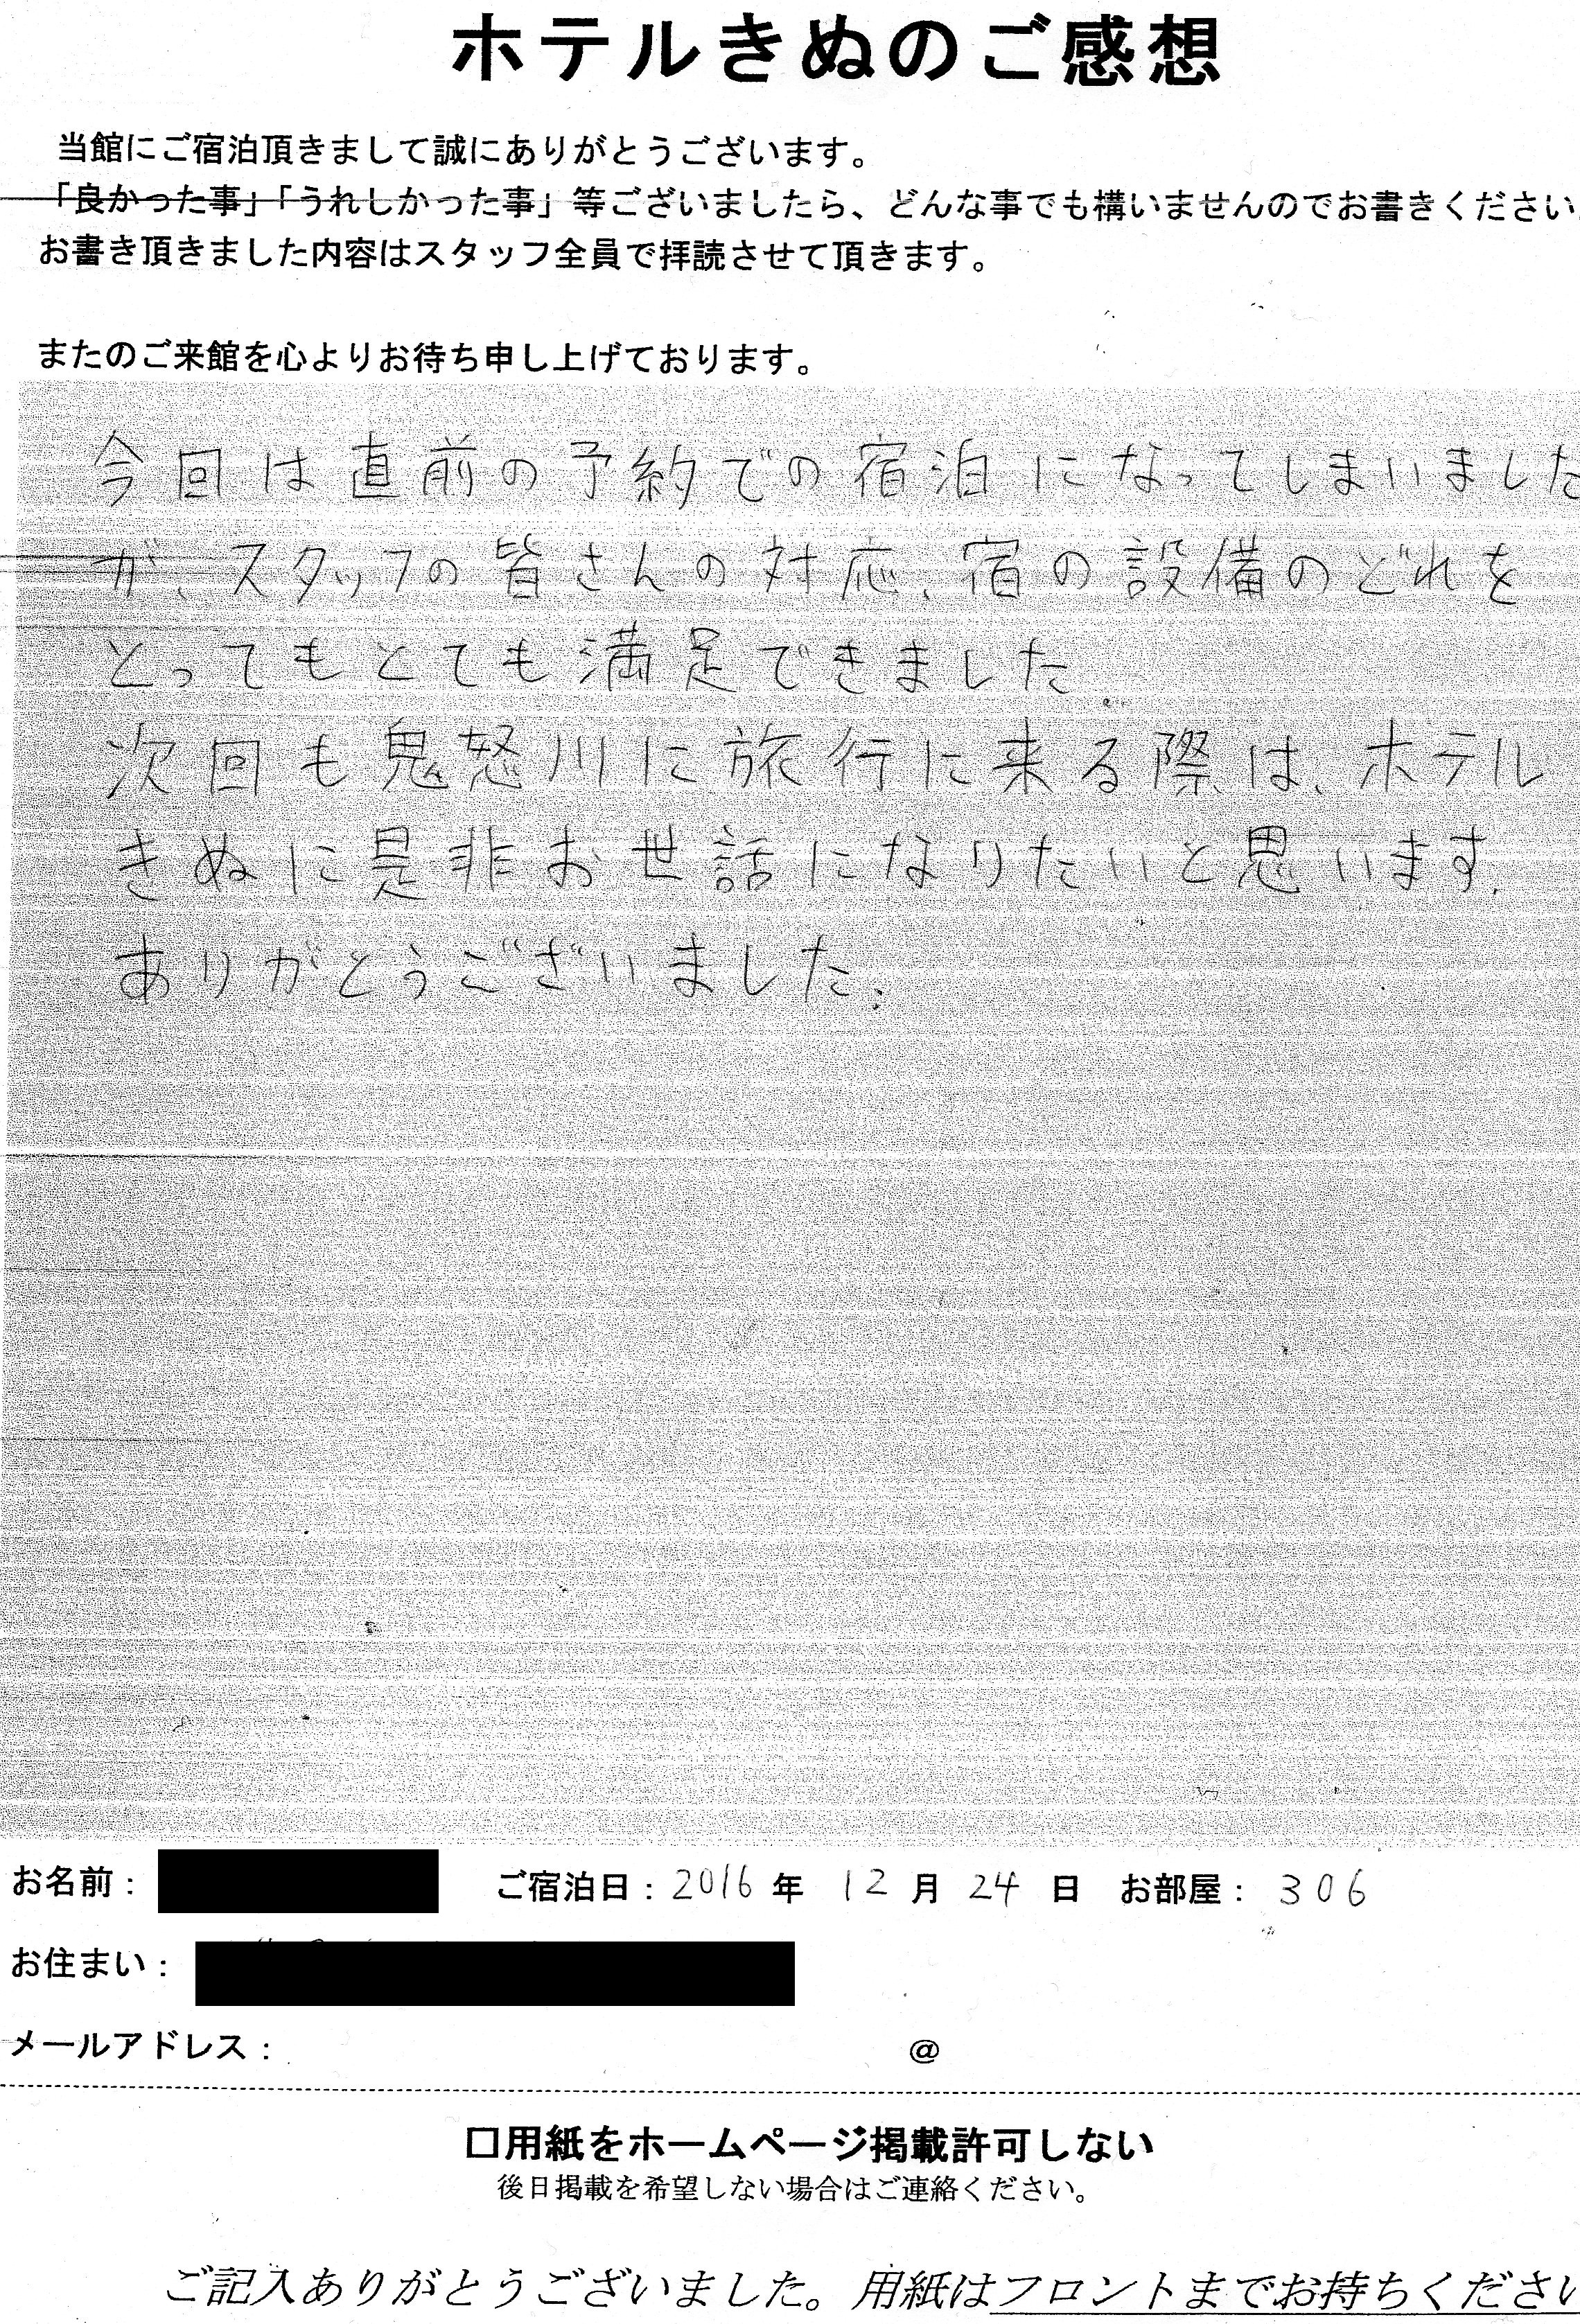 ホテルきぬのご感想
当館にご宿泊頂きまして誠にありがとうございます。
「良かった事」「うれしかった事」等ございましたら、どんな事でも構いませんのでお書きください。
お書き頂きました内容はスタッフ全員で拝読させて頂きます。
またのご来館を心よりお待ち申し上げております。
今回は直前の予約での宿泊になってしまいました
が、スタッフの皆さんの対応、宿の設備のどれを
とってもとても満足できました。
次回も鬼怒川に旅行に来る際は、ホテル
きぬに是非お世話になりたいと思います。
ありがとうございました。
お名前： ご宿泊日：2016年 12月 24日 お部屋：306
お住まい：
メールアドレス： @
□用紙をホームページ掲載許可しない
後日掲載を希望しない場合はご連絡ください。
ご記入ありがとうございました。用紙はフロントまでお持ちください